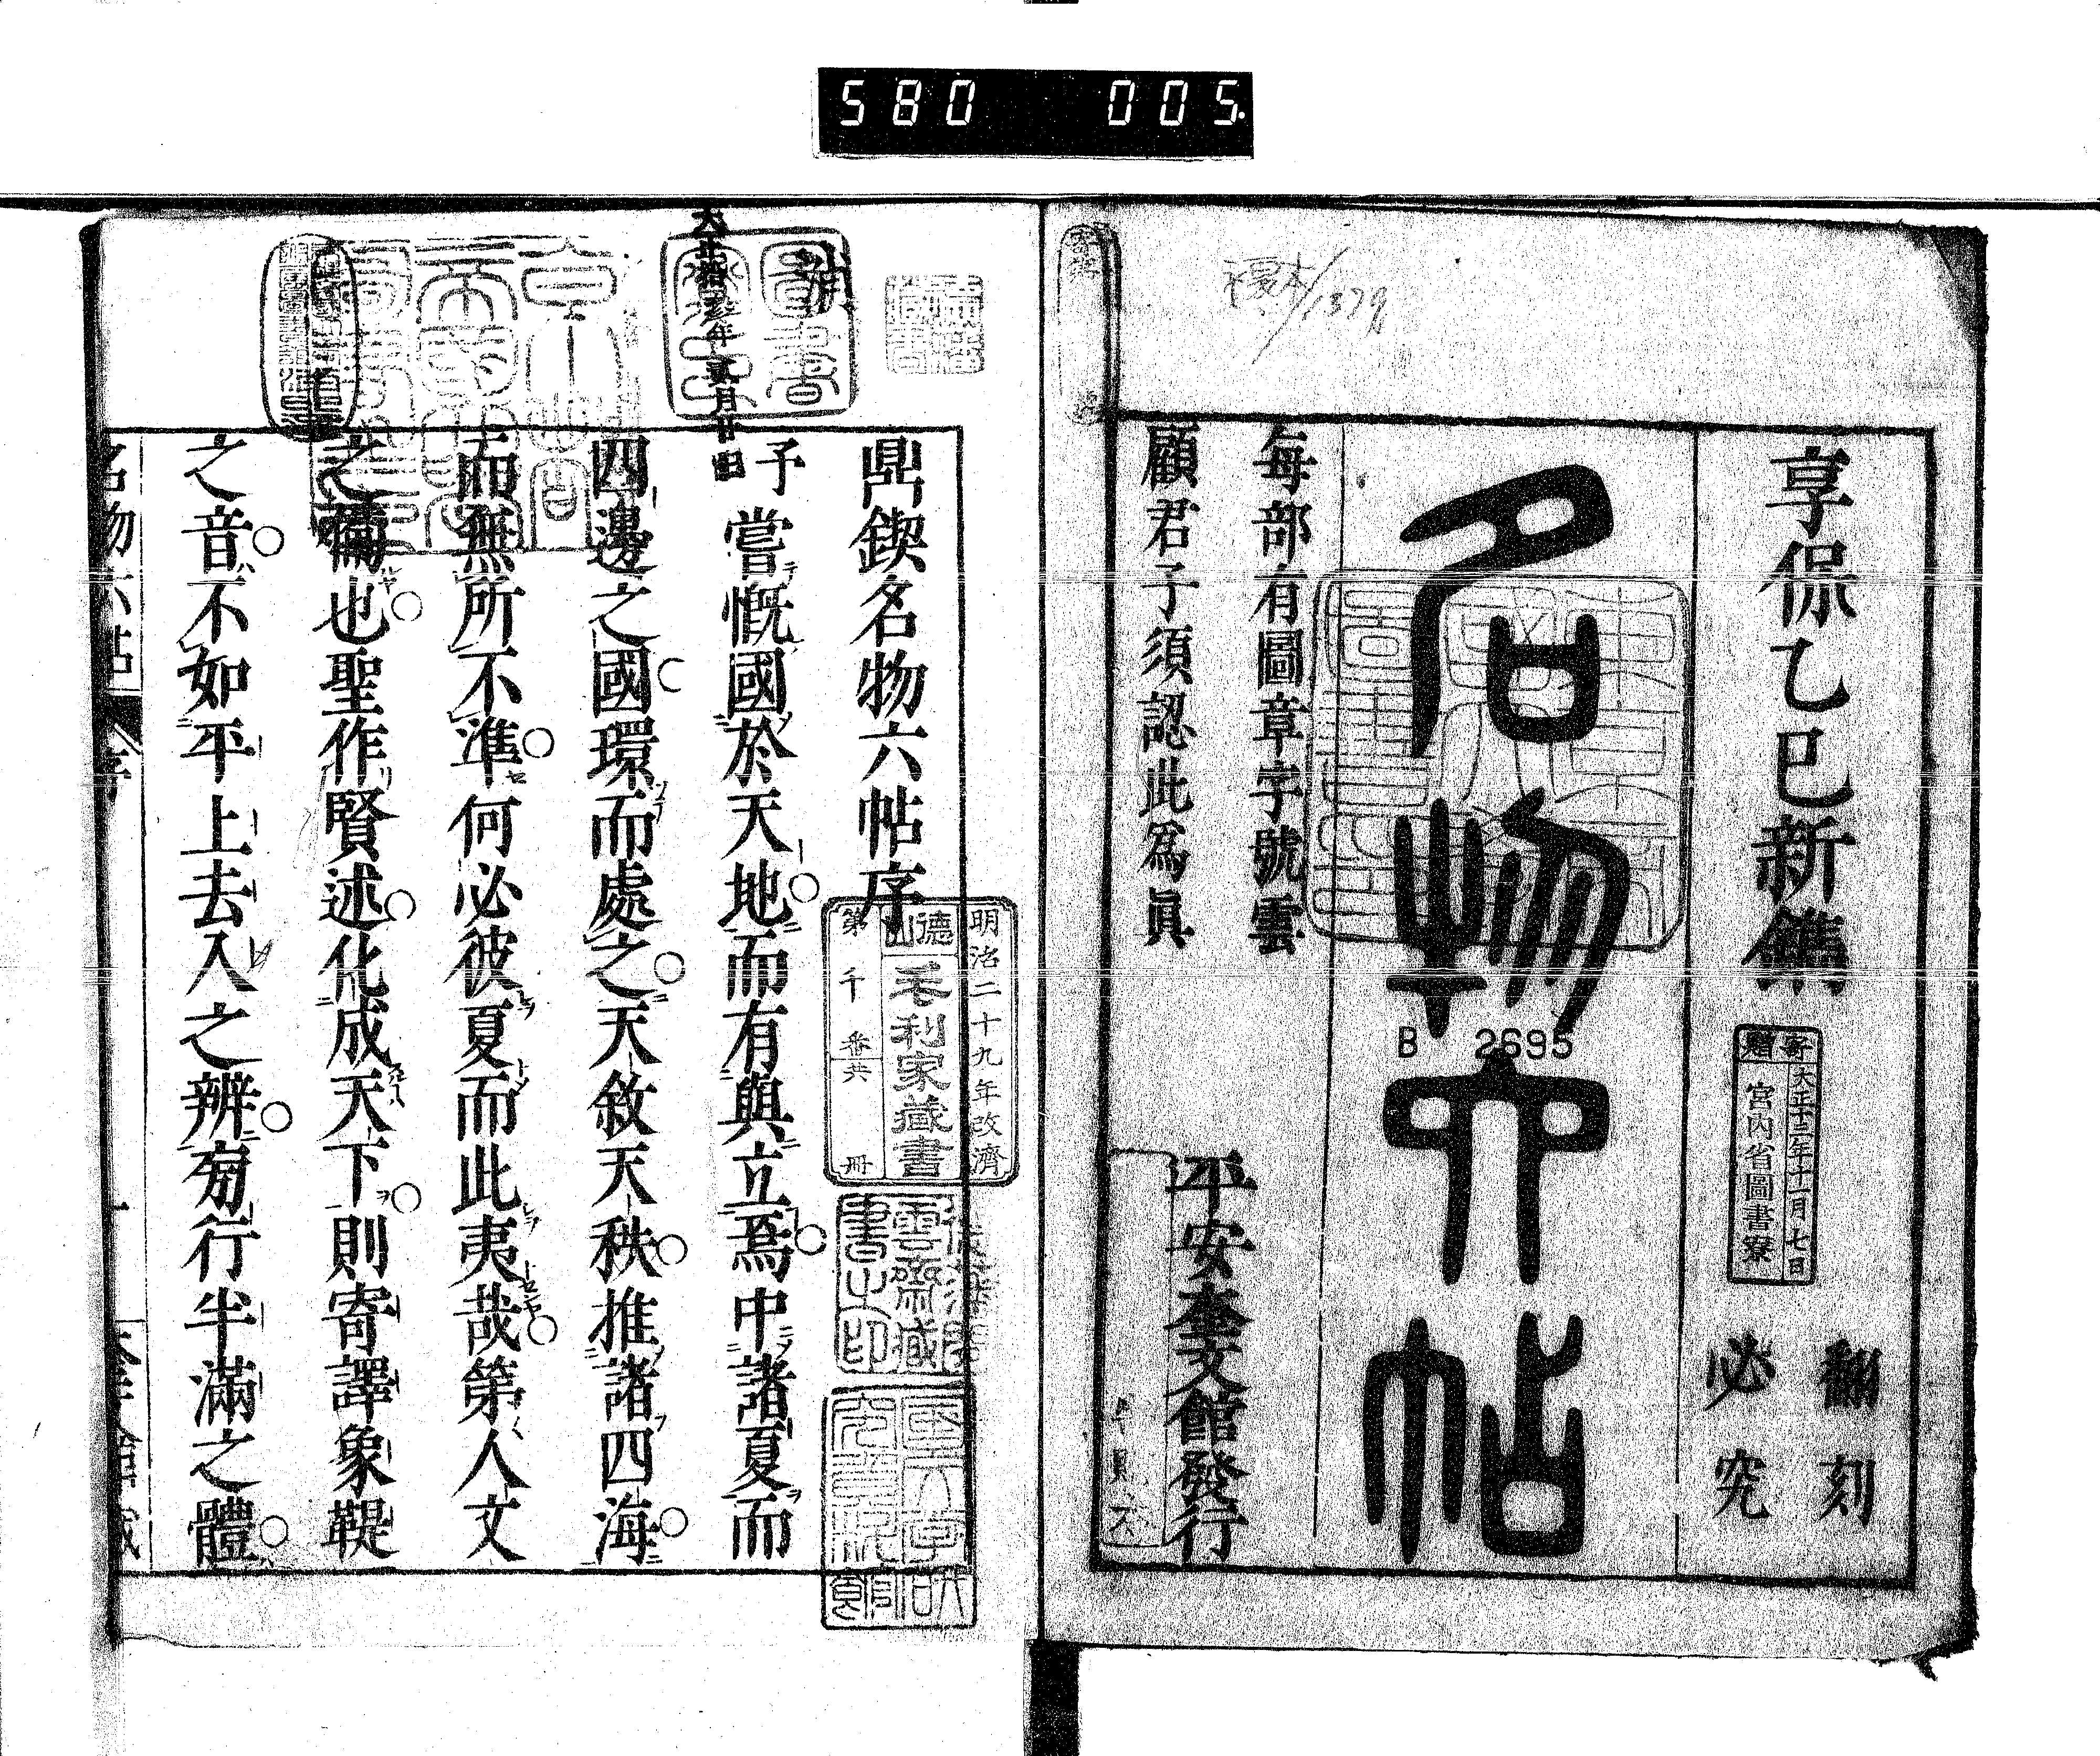 580 005
享保乙巳新鐫
翻刻
必究
寄贈
大正十三年十一月七日
宮内省圖書寮
名物六帖
B 2695
每部有圖章字號雲
顧君子須認此爲眞
平安奎文館發行
鼎鍥名物六帖序
予嘗慨國於天地而有與立焉中諸夏而
四邊之國環而處之天敘天秩推諸四海
而無所不準何必彼夏而此夷哉第人文
之備也聖作賢述化成天下則寄譯象鞮
之音不如平上去入之辨旁行半滿之體
明治二十九年改濟
德山
毛利家藏書
第千番共冊
名物六帖
序